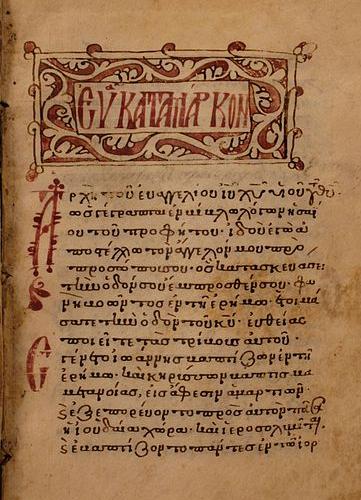 ΕΥ ΚΑΤΑ ΜΑΡΚΟΝ
Ἀρχὴ τοῦ εὐαγγελίου ἰῦ χῦ υἱοῦ θῦ·
ὡς γέγραπται ἐν βίβλω λόγων ἡσαΐ
ου τοῦ προφήτου· ἰδοὺ ἐγὼ ἀ
ποστέλλω τὸν ἄγγελόν μου πρὸ
προσώπου σου· ὃς κατασκευάσει
τὴν ὁδόν σου ἔμπροσθέν σου· φω
νὴ βοῶντος ἐν τῆ ἐρήμω· ἑτοιμά
σατε τὴν ὁδὸν κῦ· εὐθείας
ποιεῖτε τὰς τρίβους αὐτοῦ·
Ἐγένετο ἰωάννης βαπτίζων ἐν τῆ
ἐρήμω· καὶ κηρύσσων βάπτισμα
μετανοίας, εἰς ἄφεσιν ἁμαρτιῶν·
ϗ ἐξεπορεύοντο πρὸς αὐτὸν πᾶσα
ἡ ἰουδαία χώρα· καὶ ἱεροσολυμῖται
ϗ ἐβαπτίζοντο πάντες ἐν τῶ ἰορ